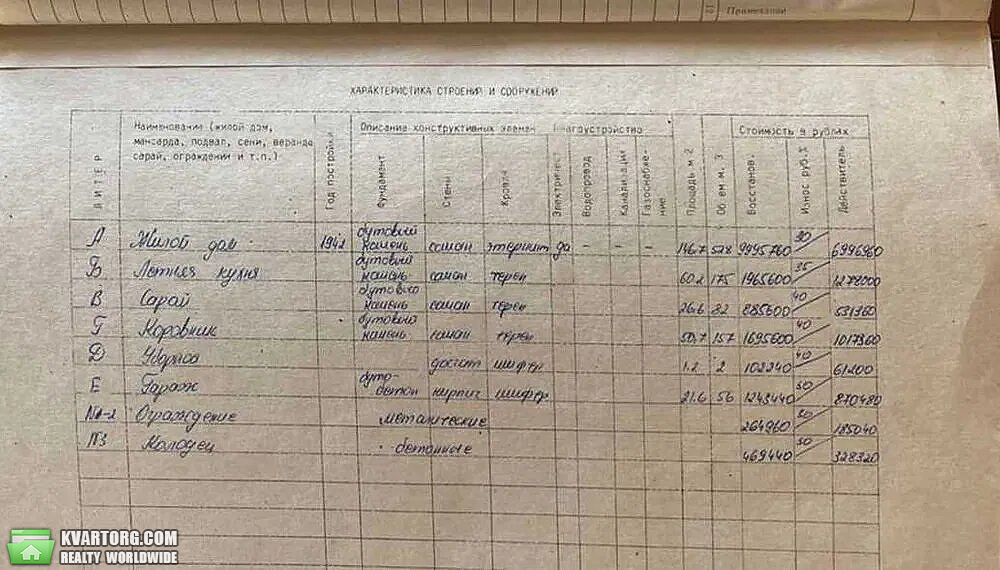 Примечания
ХАРАКТЕРИСТИКА СТРОЕНИЙ И СООРУЖЕНИЙ
ЛИТЕР
Наименование (жилой дом, мансарда, подвал, сени, веранда сарай, ограждении и т.п.)
Год постройки
Описание конструктивных элемен
Фундамент
Стены
Кровля
Благоустройство
Электричест
Водопровод
Канализация
Газоснабже-ние
Площадь м 2
Об ем м. 3
Стоимость в рублах
Восстанов.
Износ руб.%
Действител
А Жилой дом 1942 бутовый камень саман этернит да - - - 146.7 528 9995760 30 6996960
Б Летняя кухня бутовый камень саман терен 60.2 175 1965600 35 1278000
В Сарай бутовый камень саман терен 26.6 82 885600 40 531360
Г Коровник бутовый камень саман терен 50,7 157 1695600 40 1017360
Д Уборная дост шифер 1.2 2 102240 40 61200
Е Гараж буто-бетон кирпич шифер 21.6 56 1243440 30 870480
N1-2 Ограждение металические 264960 30 185040
N3 Колодец бетонные 469440 30 328320
KVARTORG.COM
REALTY WORLDWIDE